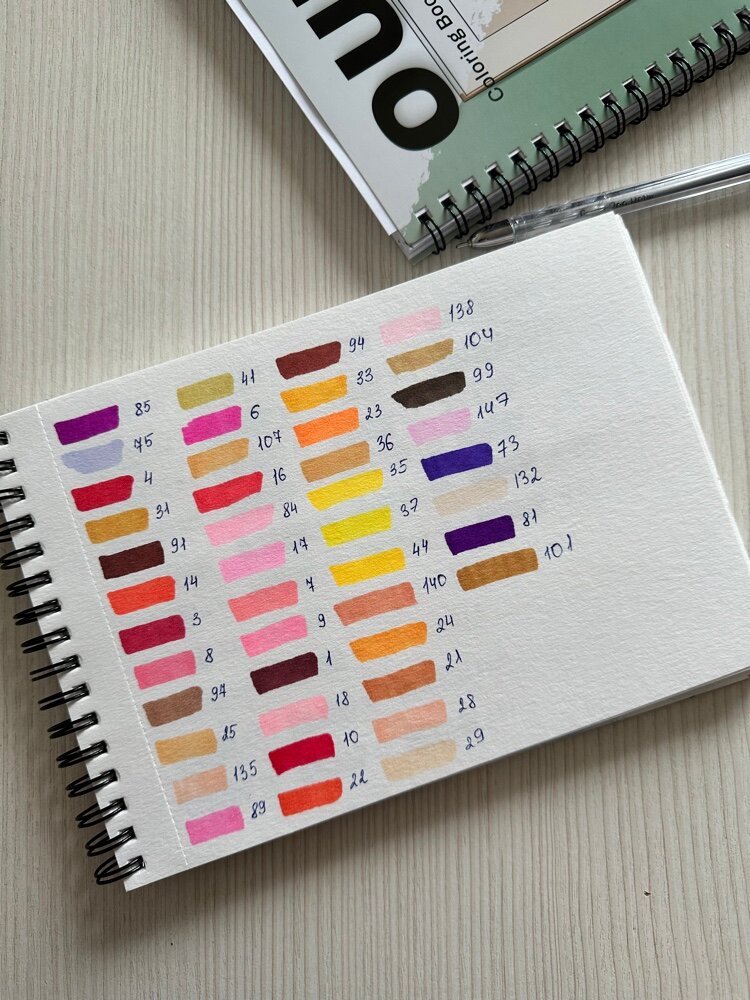 OU
Coloring Boo
85
75
4
31
91
14
3
8
97
25
135
89
41
6
107
16
84
17
7
9
1
18
10
22
94
33
23
36
35
37
44
140
24
21
28
29
138
104
99
147
73
132
81
101